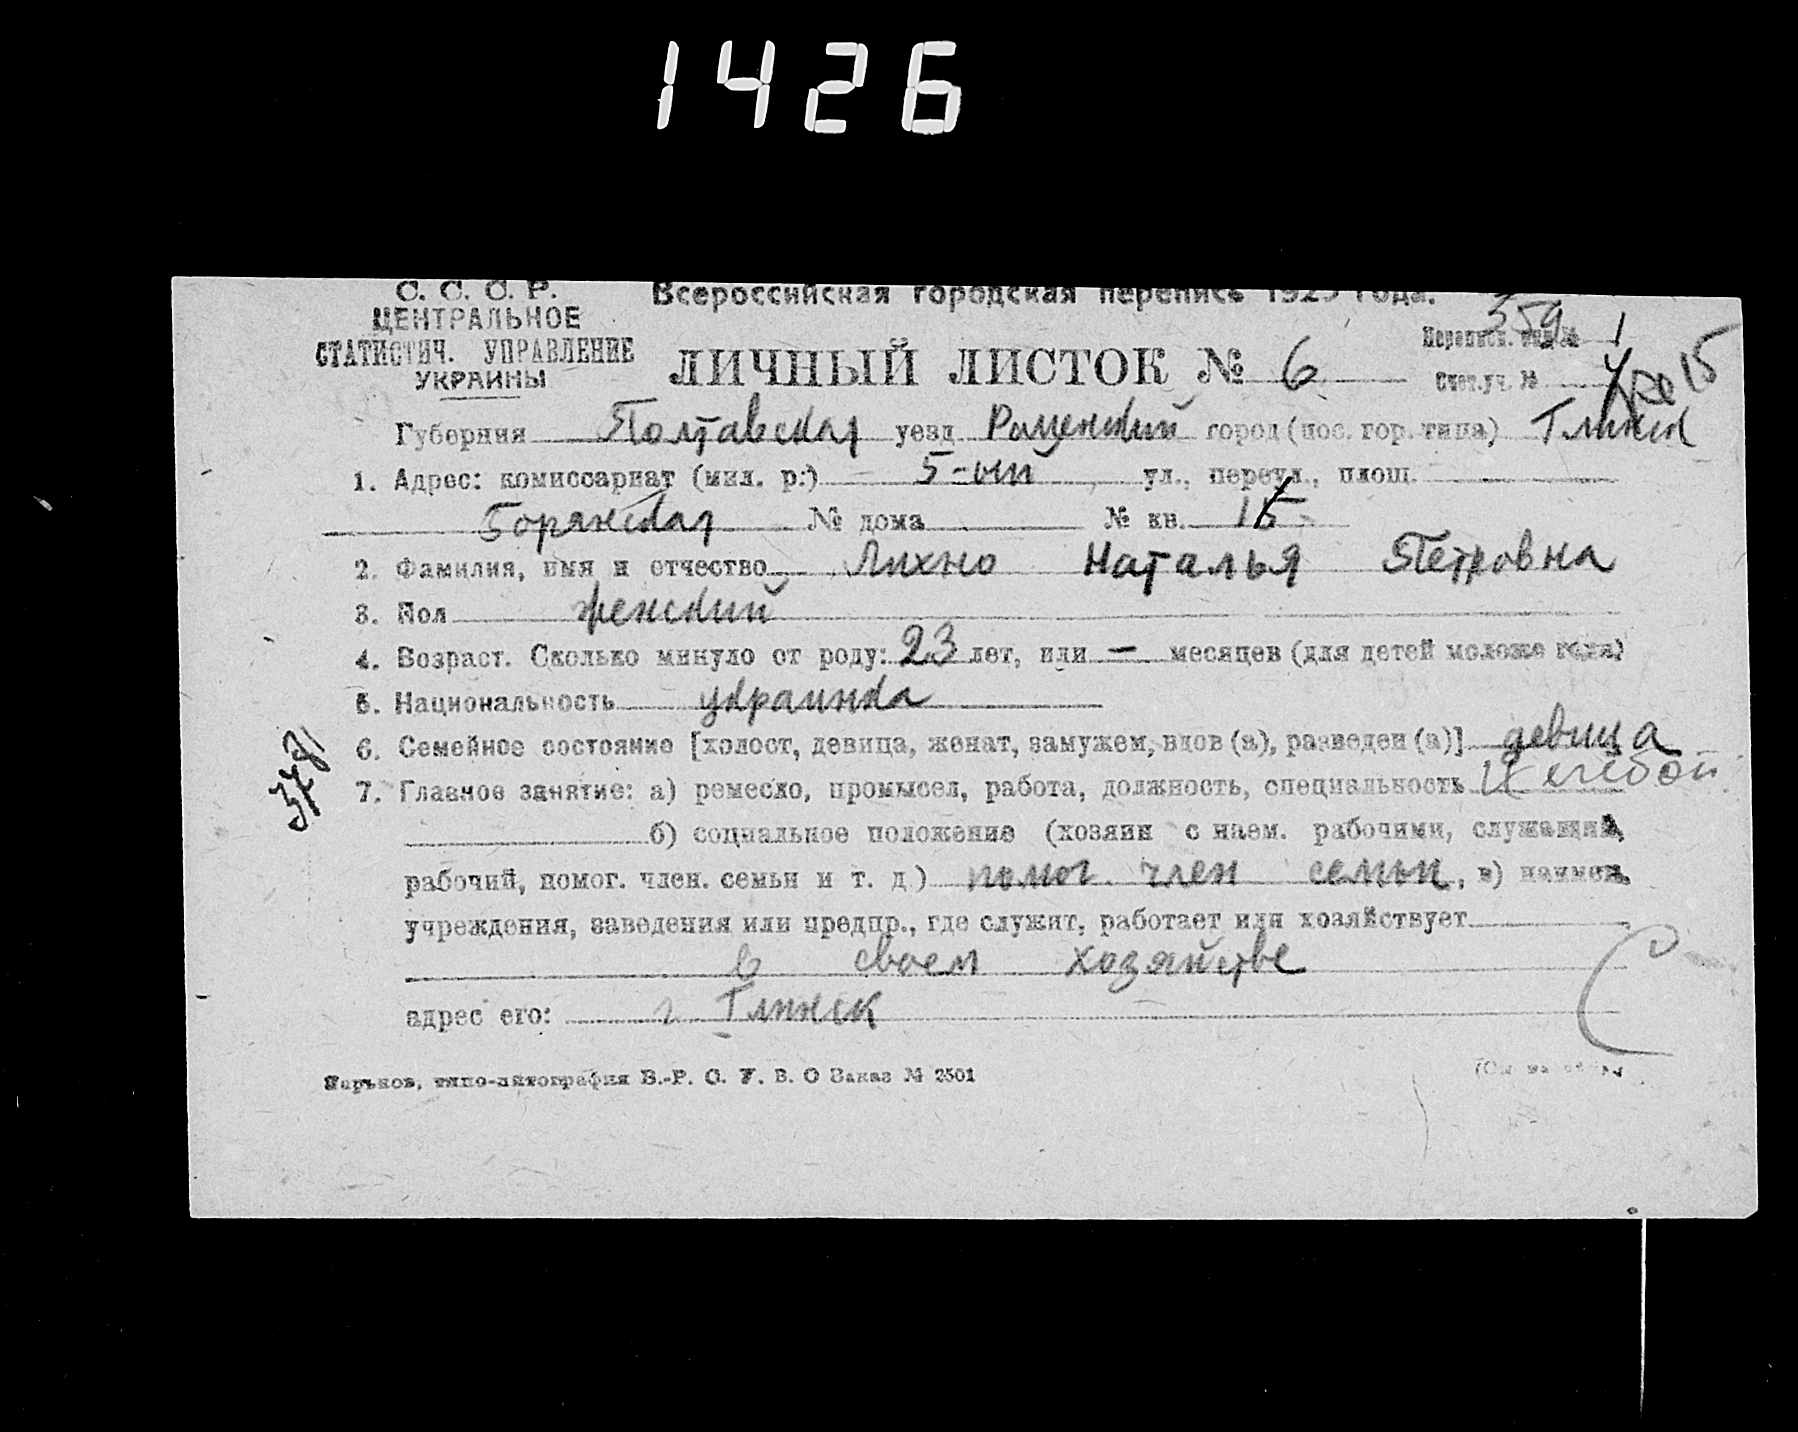 1426
С. С. С. Р.
Всероссийская городская перепись 1923 года.
ЦЕНТРАЛЬНОЕ
СТАТИСТИЧ. УПРАВЛЕНИЕ
УКРАИНЫ
ЛИЧНЫЙ ЛИСТОК № 6
359
Перепись. № 1
Счет.уч. № 15
Губерния Полтавская уезд Роменский город (пос. гор. типа) Глинск
1. Адрес: комиссариат (мил. р.) 5-ый ул., переул., площ.
№ дома № кв. 15
2. Фамилия, имя и отчество Лихно Наталья Петровна
3. Пол женский
4. Возраст. Сколько минуло от роду: 23 лет, или — месяцев (для детей моложе года)
5. Национальность украинка
6. Семейное состояние [холост, девица, женат, замужем, вдов (а), разведен (а)] девица
378
7. Главное занятие: а) ремесло, промысел, работа, должность, специальность
б) социальное положение (хозяин с наем. рабочими, служащий,
рабочий, помог. член. семьи и т. д) помог. член семьи, в) наимен.
учреждения, заведения или предпр., где служит, работает или хозяйствует
в своем хозяйстве
адрес его: г Глинск
Харьков, типо-литография В.-Р. С. У. В. О Заказ № 2501